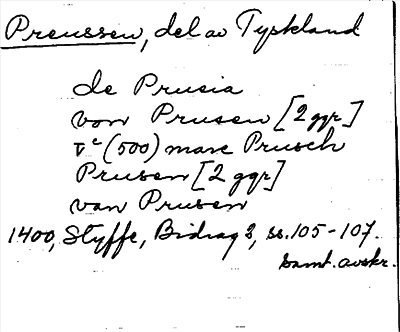 Preussen, del av Tyskland
de Prusia
von Prusen [2 ggr]
vᶜ (500) marc Prusch
Prusen [2 ggr]
van Prusen
1400, Styffe, Bidrag 2, ss. 105-107.
samt. avskr.